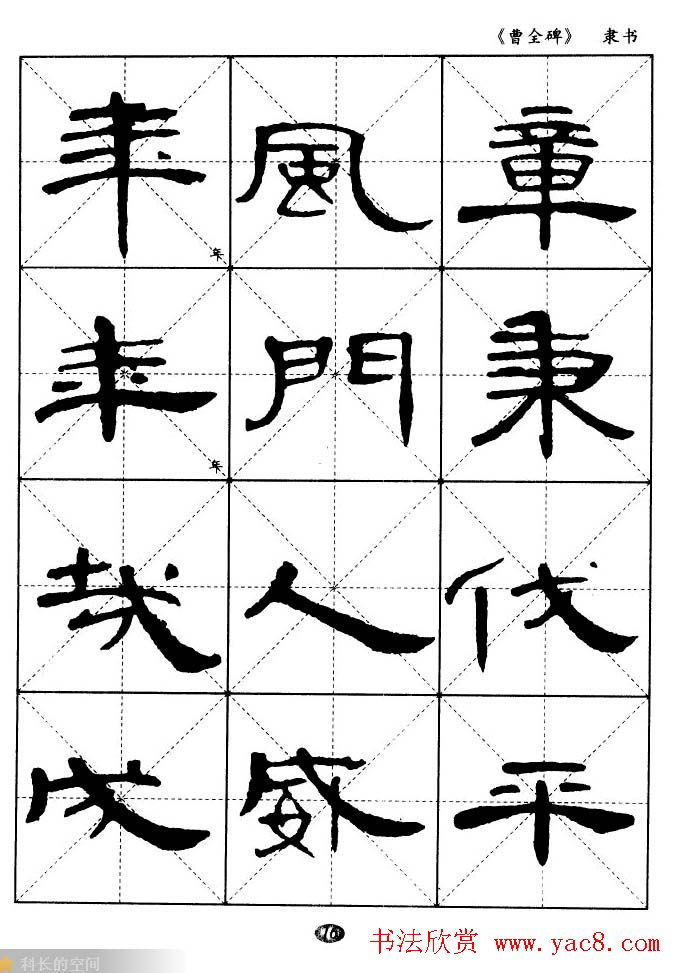 《曹全碑》 隶书
章秉伐平
風門人威
年年戊
年
年
76
书法欣赏 www.yac8.com
科长的空间